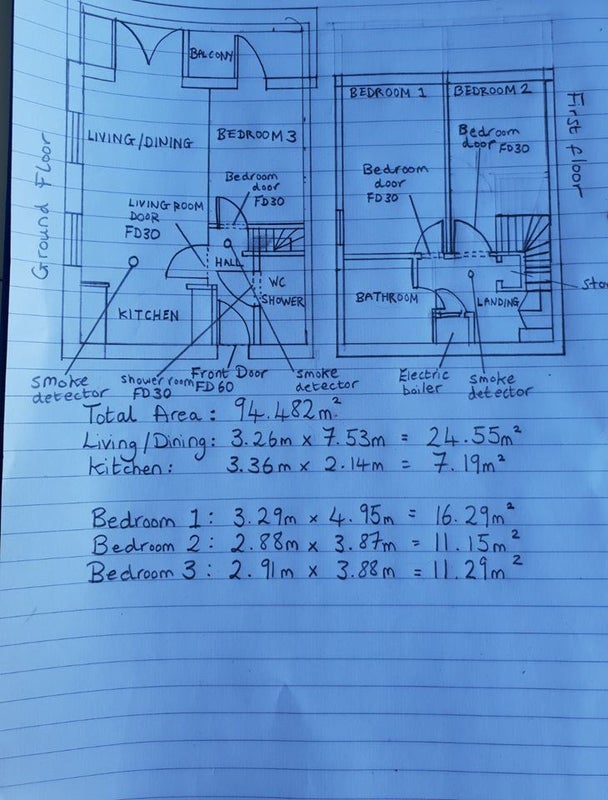 Ground Floor
BALCONY
LIVING/DINING
BEDROOM 3
Bedroom
door
FD30
LIVING ROOM
DOOR
FD30
HALL
WC
SHOWER
KITCHEN
smoke
detector
shower room
FD30
Front Door
FD60
smoke
detector
First floor
BEDROOM 1
BEDROOM 2
Bedroom
door FD30
Bedroom
door
FD30
BATHROOM
LANDING
Electric
boiler
smoke
detector
Total Area: 94.482m²
Living/Dining: 3.26m x 7.53m = 24.55m²
Kitchen: 3.36m x 2.14m = 7.19m²
Bedroom 1: 3.29m x 4.95m = 16.29m²
Bedroom 2: 2.88m x 3.87m = 11.15m²
Bedroom 3: 2.91m x 3.88m = 11.29m²